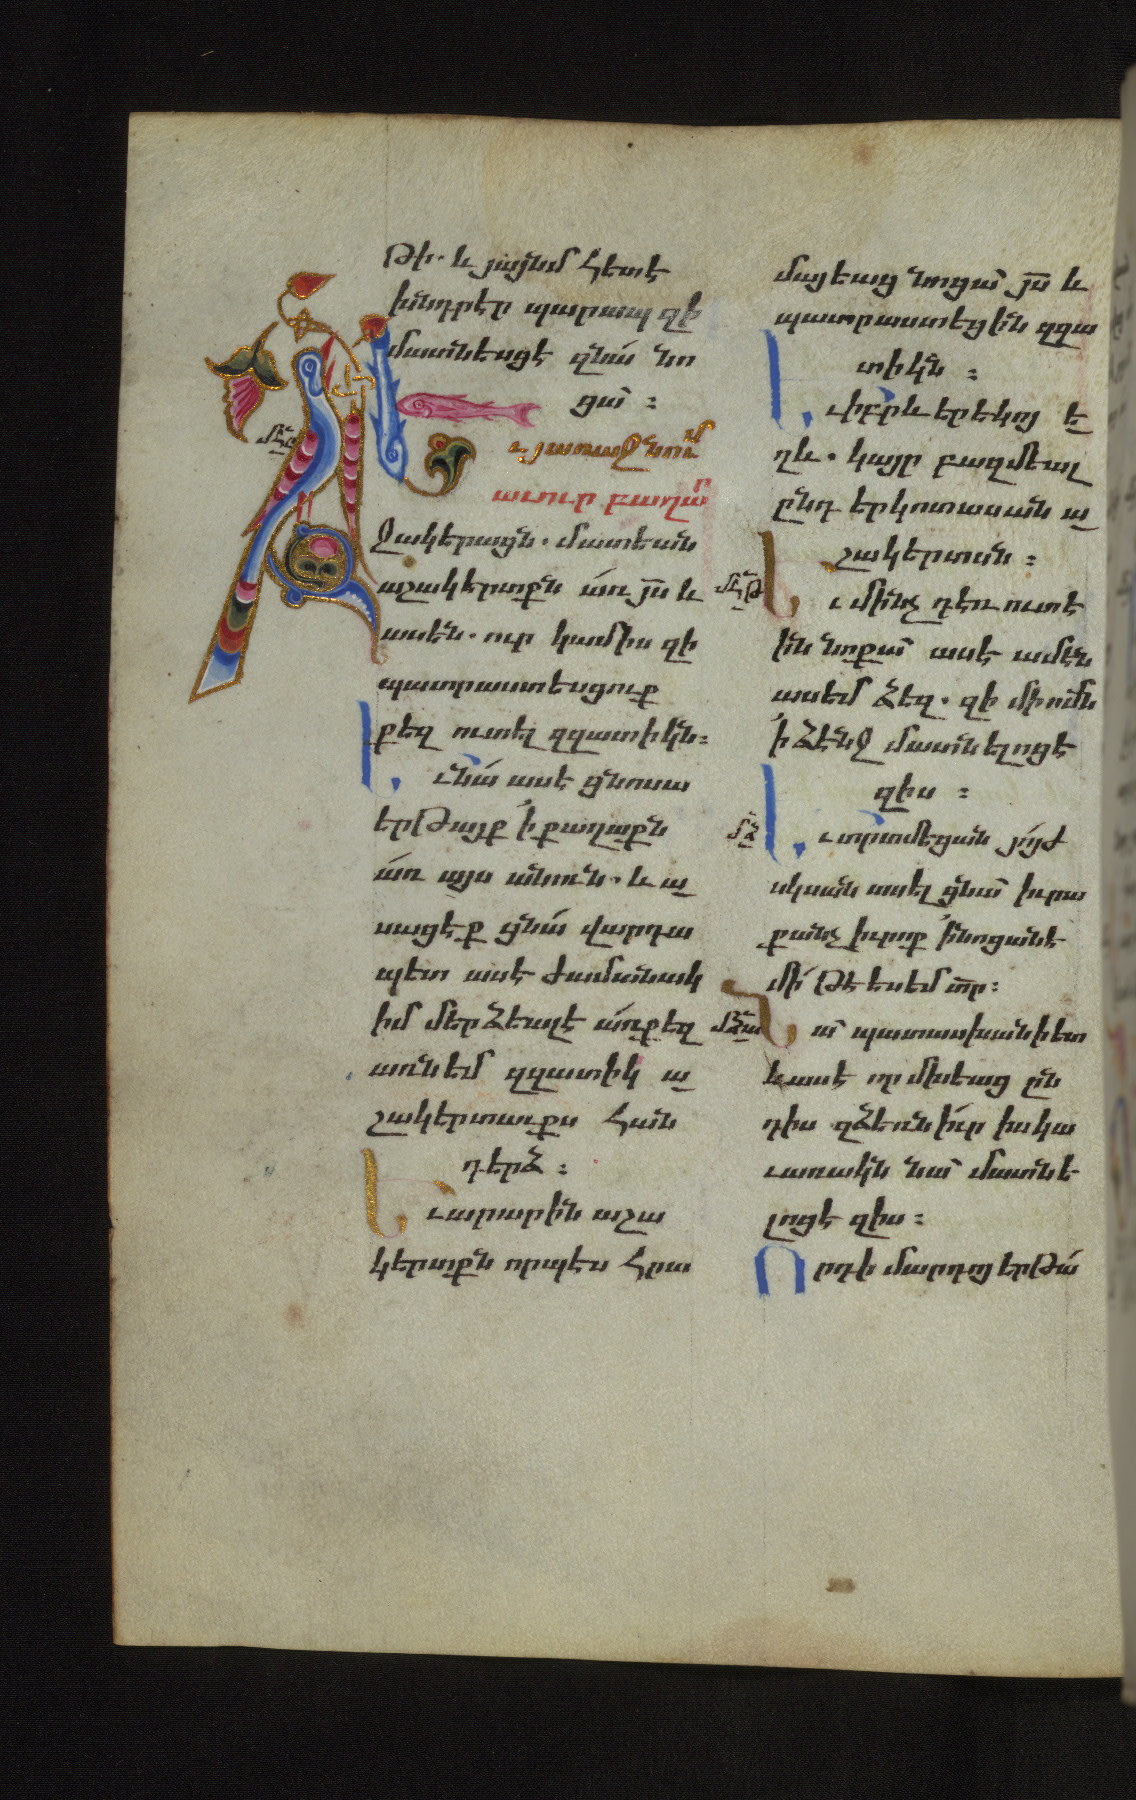 թի. և յայնմ հետէ
խնդրէր պարապ զի
մատնեսցէ զնա նո
ցա՟ :
Եւ յառաջնում
աւուր բաղա՟
ջակերացն. մատեան
աշակերտքն առ յ՟ս և
ասեն. ուր կամիս զի
պատրաստեսցուք
քեզ ուտել զզատիկն:
Եւ նա ասէ ցնոսա
երթայք ի քաղաքն
առ այս անուն. և ա
սացէք ցնա վարդա
պետ ասէ ժամանակ
իմ մերձեալ է առ քեզ
առնեմ զզատիկ ա
շակերտաւքս հան
դերձ :
Եւ արարին աշա
կերտքն որպէս հրա
մայեաց նոցա՟ յ՟ս և
պատրաստեցին զզա
տիկն :
Եւ իբրև երեկոյ ե
ղև. կայր բազմեալ
ընդ երկոտասան ա
շակերտսն :
Եւ մինչ դեռ ուտէ
ին նոքա՟ ասէ ամէն
ասեմ ձեզ. զի մի ոմն
ի ձէնջ մատնելոց է
զիս :
Եւ տրտմեցան յոյժ
սկսան ասել ցնա՟ իւրա
քանչիւրոք ի նոցանէ
մի թէ ես եմ տ՟ր:
Նա՟ պատասխանի ետ
և ասէ որ մխեաց ըն
դիս զձեռն իւր ի սկա
ւառակն նա՟ մատնե
լոց է զիս :
Որդի մարդոյ երթա